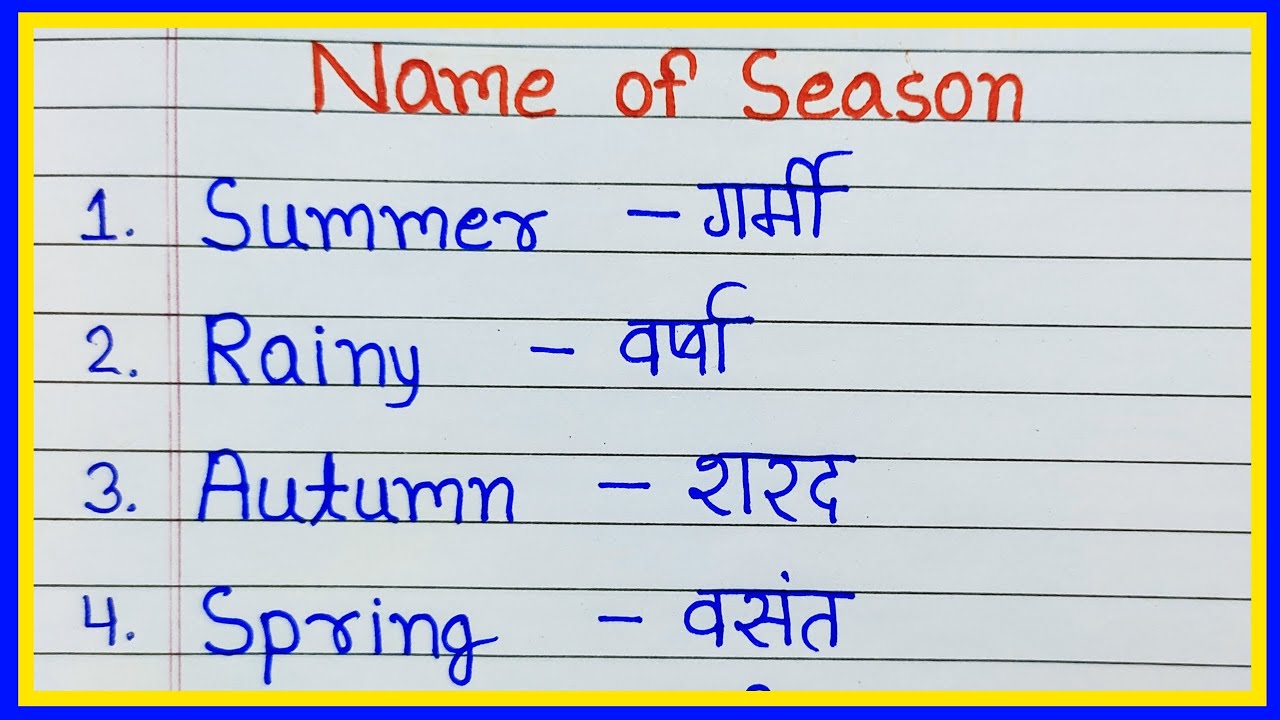 Name of Season
1. Summer - गर्मी
2. Rainy - वर्षा
3. Autumn - शरद
4. Spring - वसंत